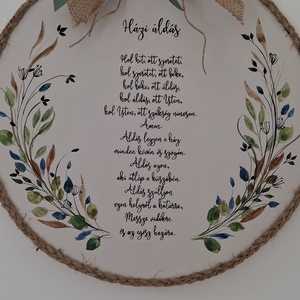 Házi áldás
Hol hit, ott szeretet,
hol szeretet, ott béke,
hol béke, ott áldás,
hol áldás, ott Isten,
hol Isten, ott szükség nincsen.
Ámen.
Áldás legyen e ház
minden kövén és zugán.
Áldás azon,
aki átlép a küszöbén.
Áldás szálljon
ezen helyről a határra,
Messze vidékre
és az egész hazára.